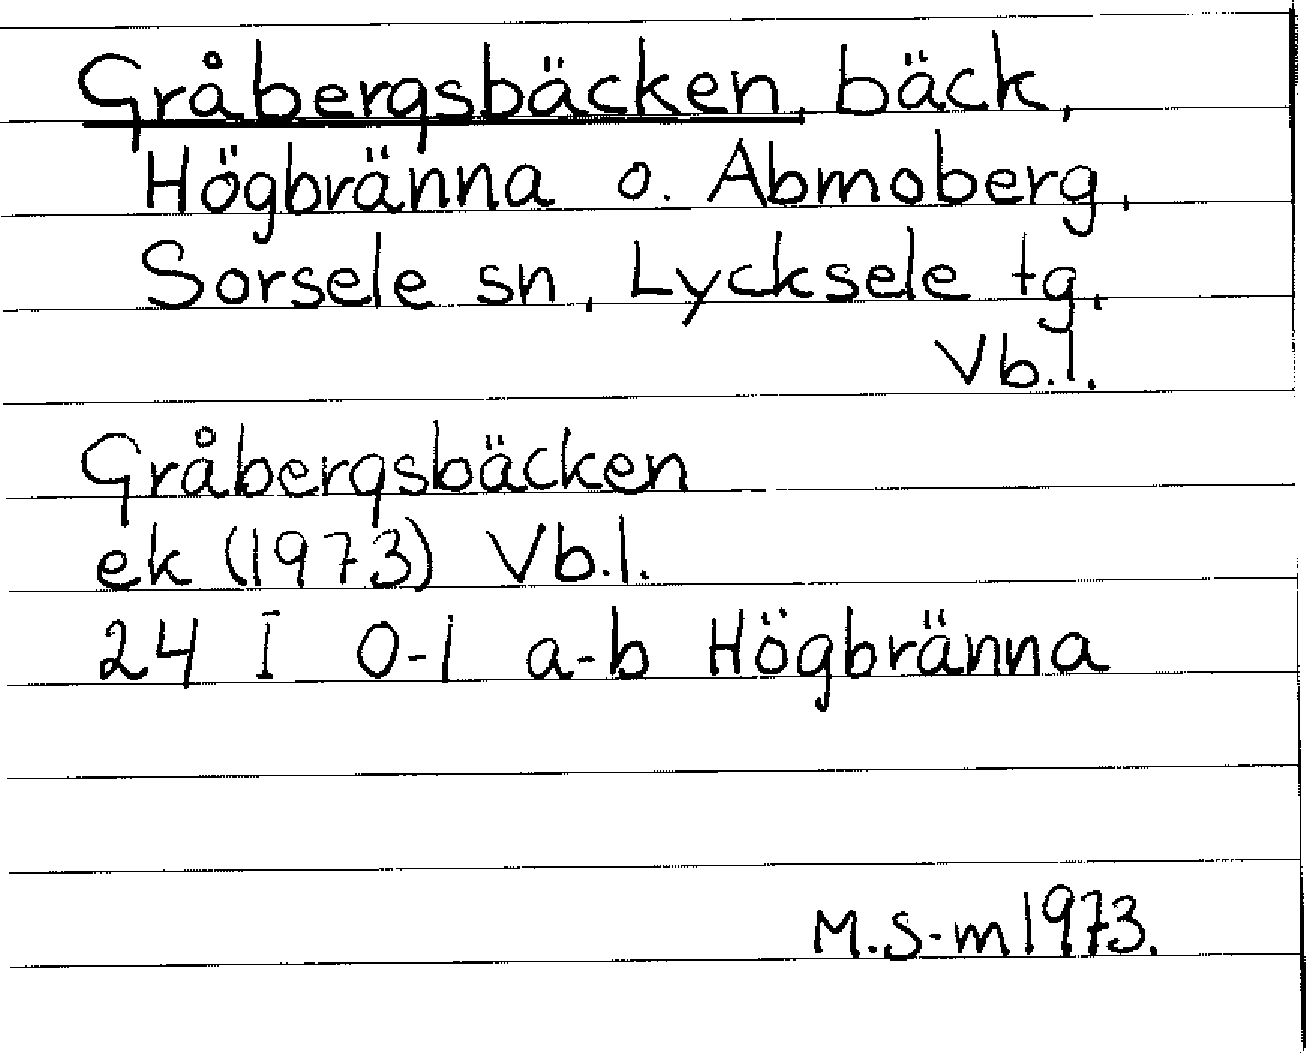 Gråbergsbäcken, bäck,
Högbränna o. Abmoberg,
Sorsele sn, Lycksele tg,
Vb.l.
Gråbergsbäcken
ek (1973) Vb.l.
24 I 0-1 a-b Högbränna
M.S-m 1973.